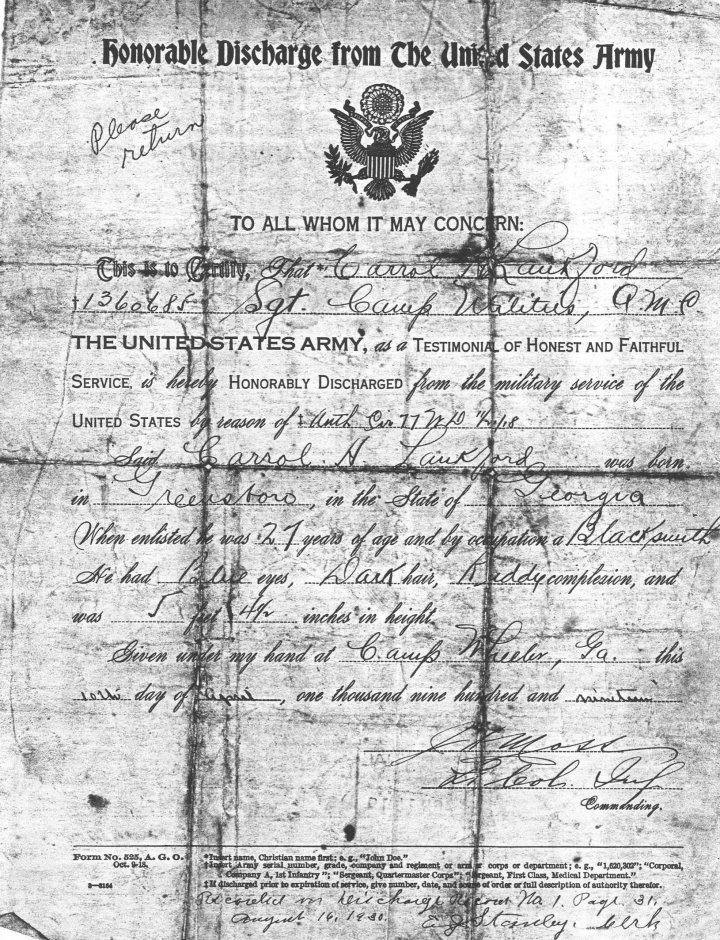 Honorable Discharge from The United States Army
Please
return
TO ALL WHOM IT MAY CONCERN:
This is to Certify, That* Carrol H. Lankford
†1360685 Sgt. Camp Utilities, Q.M.C.
THE UNITED STATES ARMY, as a TESTIMONIAL OF HONEST AND FAITHFUL
SERVICE, is hereby HONORABLY DISCHARGED from the military service of the
UNITED STATES by reason of ‡ Auth Cir 77 W D
Said Carrol H. Lankford was born
in Greensboro, in the State of Georgia
When enlisted he was 27 years of age and by occupation a Blacksmith
He had Blue eyes, Dark hair, Ruddy complexion, and
was 5 feet 4½ inches in height.
Given under my hand at Camp Wheeler, Ga. this
10th day of April, one thousand nine hundred and nineteen
Moss
Lt Col. Inf
Commanding.
Form No. 525, A. G. O.
Oct. 9-18.
3—3164
*Insert name, Christian name first; e. g., "John Doe."
†Insert Army serial number, grade, company and regiment or arm or corps or department; e. g., "1,620,302"; "Corporal,
Company A, 1st Infantry"; "Sergeant, Quartermaster Corps"; "Sergeant, First Class, Medical Department."
‡If discharged prior to expiration of service, give number, date, and source of order or full description of authority therefor.
Recorded in Discharge Record No. 1. Page 31.
August 16, 1930. E. J. Stanley, Clerk